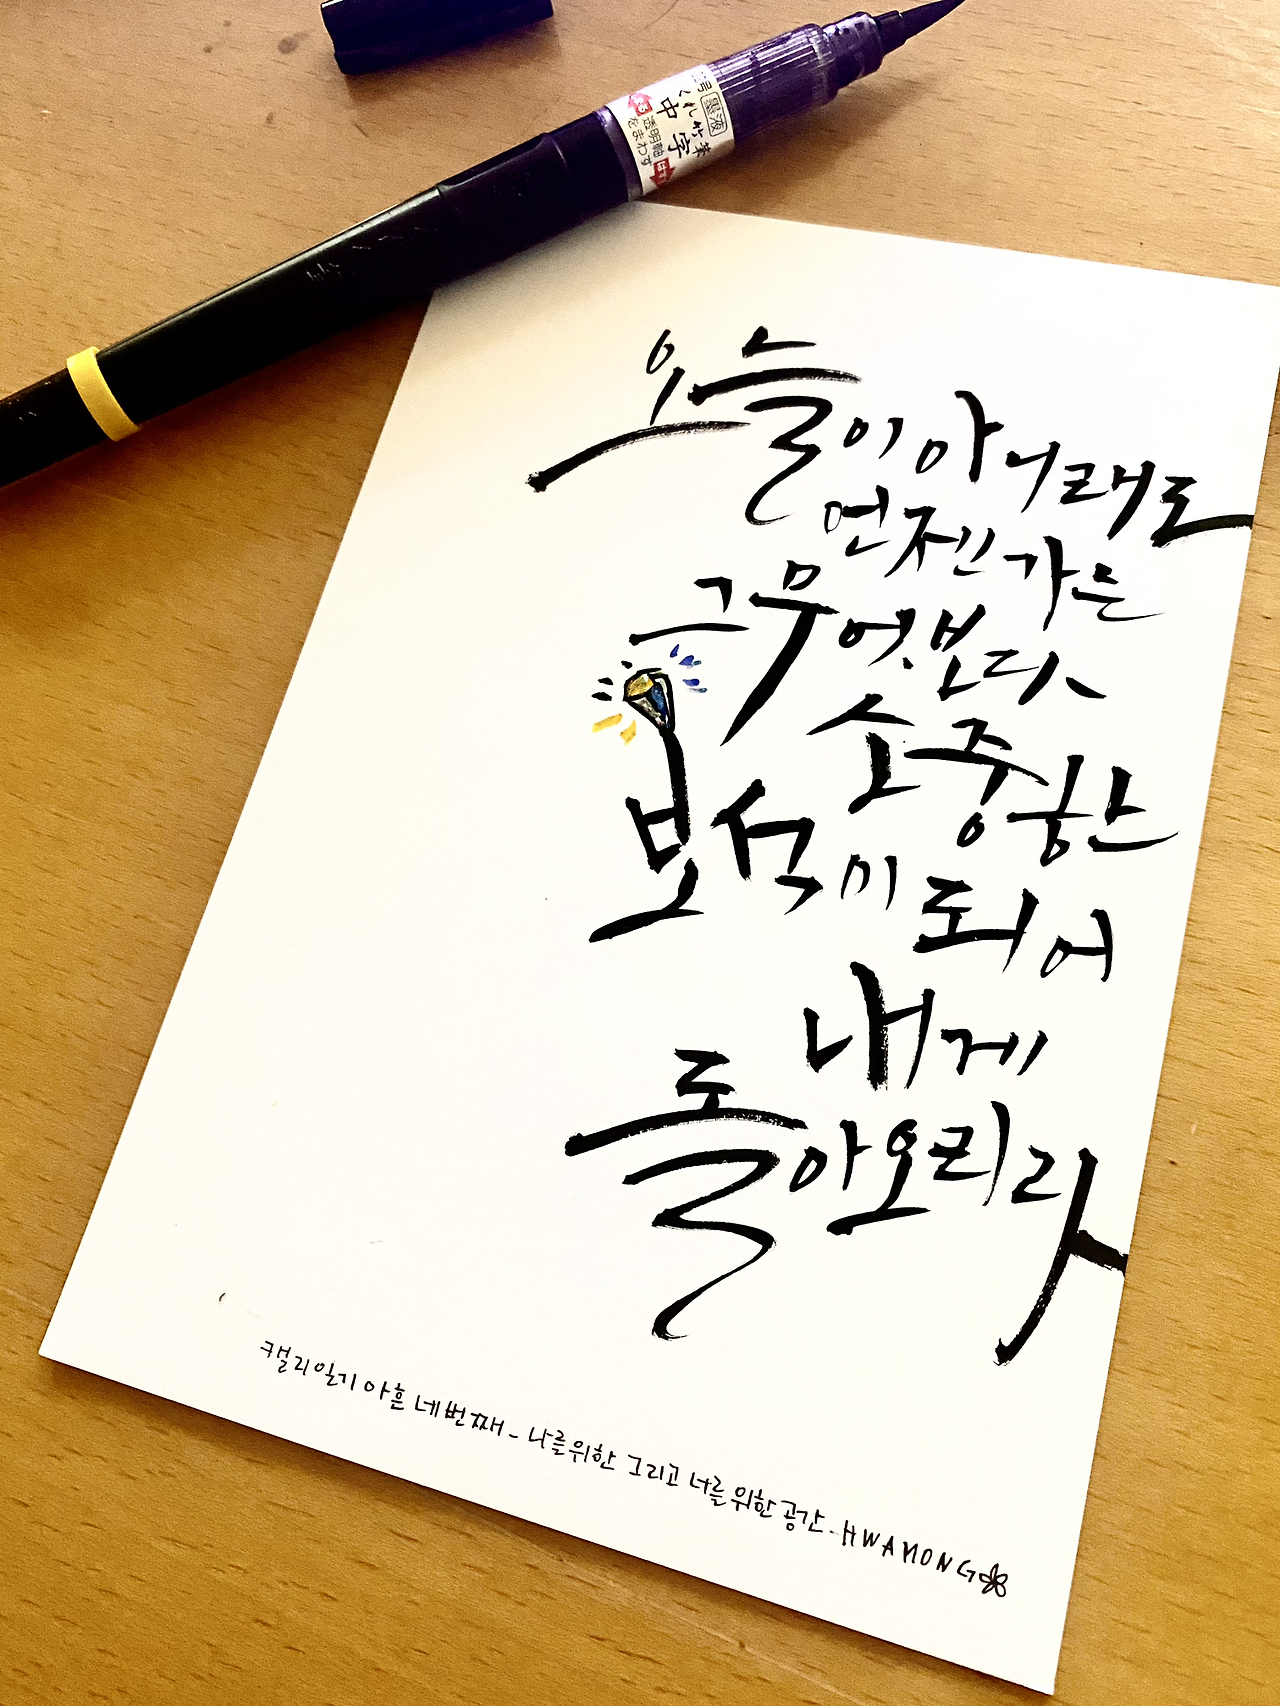 二号 墨液
くれ竹筆
中字
透明軸
をまわす
오늘이 아니래도
언젠가는
그 무엇보다
소중한
보석이 되어
내게
돌아오리라
캘리일기 아흔 네번째 - 나를위한 그리고 너를 위한 공간 - HWAMONG